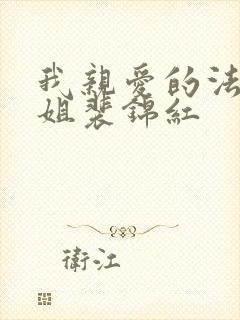 我親愛的法
姐裴錦紅
衛江